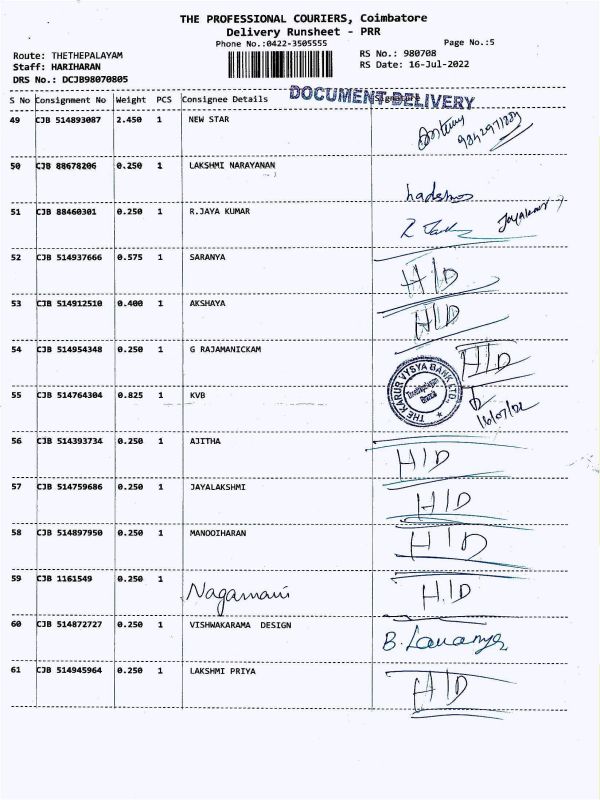 THE PROFESSIONAL COURIERS, Coimbatore
Delivery Runsheet - PRR
Phone No.:0422-3505555
Page No.:5
Route: THETHEPALAYAM
RS No.: 980708
Staff: HARIHARAN
RS Date: 16-Jul-2022
DRS No.: DCJB98070805
DOCUMENT DELIVERY
S No Consignment No Weight PCS Consignee Details
49 CJB 514893087 2.450 1 NEW STAR
50 CJB 88678206 0.250 1 LAKSHMI NARAYANAN
51 CJB 88460301 0.250 1 R.JAYA KUMAR Jayakumar
52 CJB 514937666 0.575 1 SARANYA H/D
53 CJB 514912510 0.400 1 AKSHAYA H/D
54 CJB 514954348 0.250 1 G RAJAMANICKAM H/D
THE KARUR VYSYA BANK LTD.
Thethepalayam
Branch
55 CJB 514764304 0.825 1 KVB 16/07/22
56 CJB 514393734 0.250 1 AJITHA H/D
57 CJB 514759686 0.250 1 JAYALAKSHMI H/D
58 CJB 514897950 0.250 1 MANOOIHARAN H/D
59 CJB 1161549 0.250 1 Nagamani H/D
60 CJB 514872727 0.250 1 VISHWAKARAMA DESIGN B. Lavanya
61 CJB 514945964 0.250 1 LAKSHMI PRIYA H/D